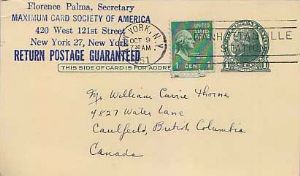 Florence Palma, Secretary
MAXIMUM CARD SOCIETY OF AMERICA
420 West 121st Street
New York 27, New York
RETURN POSTAGE GUARANTEED
YORK, N.Y.
OCT 9
AM
STATION
1 CENT
THIS SIDE OF CARD IS FOR ADDRESS
Mr. William Carrie Thorne
4827 Water Lane
Caulfeild, British Columbia
Canada